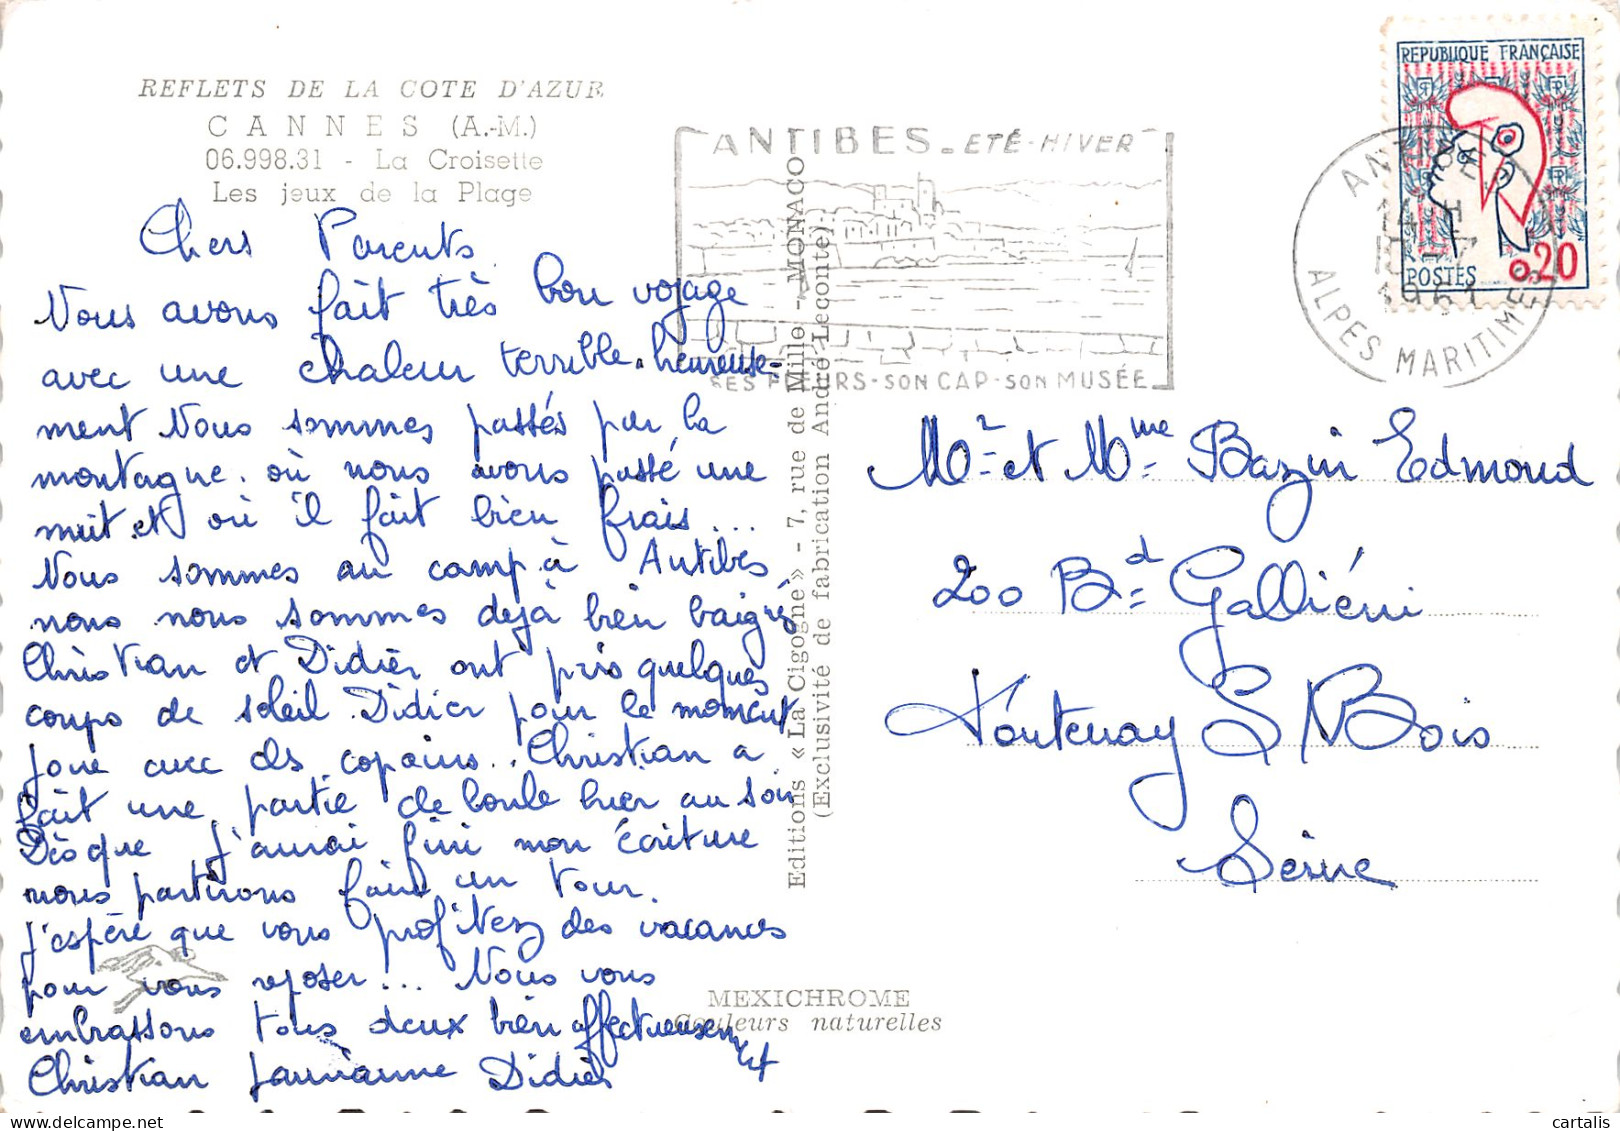 REFLETS DE LA COTE D'AZUR
CANNES (A.-M.)
06.998.31 - La Croisette
Les jeux de la Plage
Chers Parents
Nous avons fait très bon voyage
avec une chaleur terrible. heureuse-
ment Nous sommes passés par la
montagne. où nous avons passé une
nuit et où il fait bien frais...
Nous sommes au camp à Antibes
nous nous sommes dejà bien baigné
Christian et Didier ont pris quelques
coups de soleil. Didier pour le moment
joue avec des copains.. Christian a
fait une partie de boule hier au soir
Dès que j'aurai fini mon écriture
nous partirons faire un tour.
j'espère que vous profitez des vacances
pour vous reposer... Nous vous
embrassons tous deux bien affectueusement
Christian Didier
ANTIBES - ETÉ - HIVER
SES FLEURS - SON CAP - SON MUSÉE
ANTIBES
ALPES MARITIMES
REPUBLIQUE FRANÇAISE
POSTES 0,20
Editions « La Cigogne » - 7, rue de Mille - MONACO
(Exclusivité de fabrication André Leconte)
Mr et Mme Bazin Edmond
200 Bd Galliéni
Fontenay S/ Bois
Seine
MEXICHROME
Couleurs naturelles
cartalis